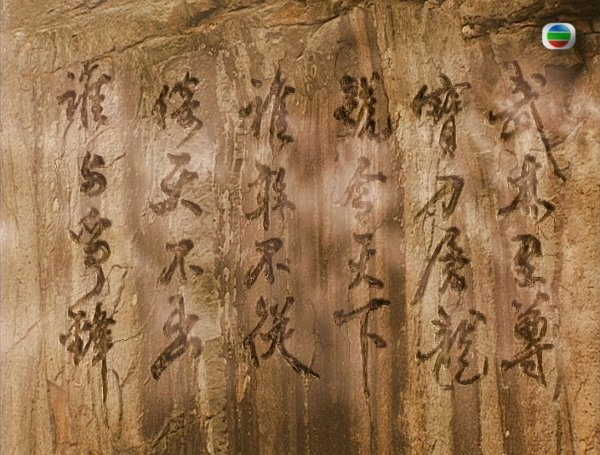 武林至尊
寶刀屠龍
號令天下
誰敢不從
倚天不出
誰與爭鋒